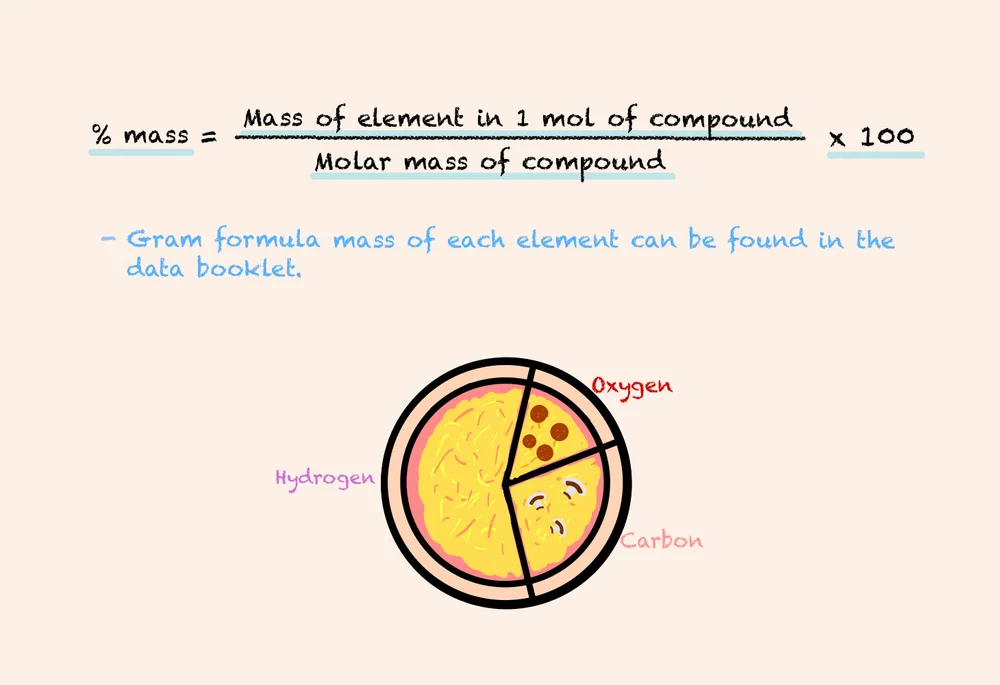 % mass = Mass of element in 1 mol of compound x 100
Molar mass of compound
- Gram formula mass of each element can be found in the
data booklet.
Oxygen
Hydrogen
Carbon